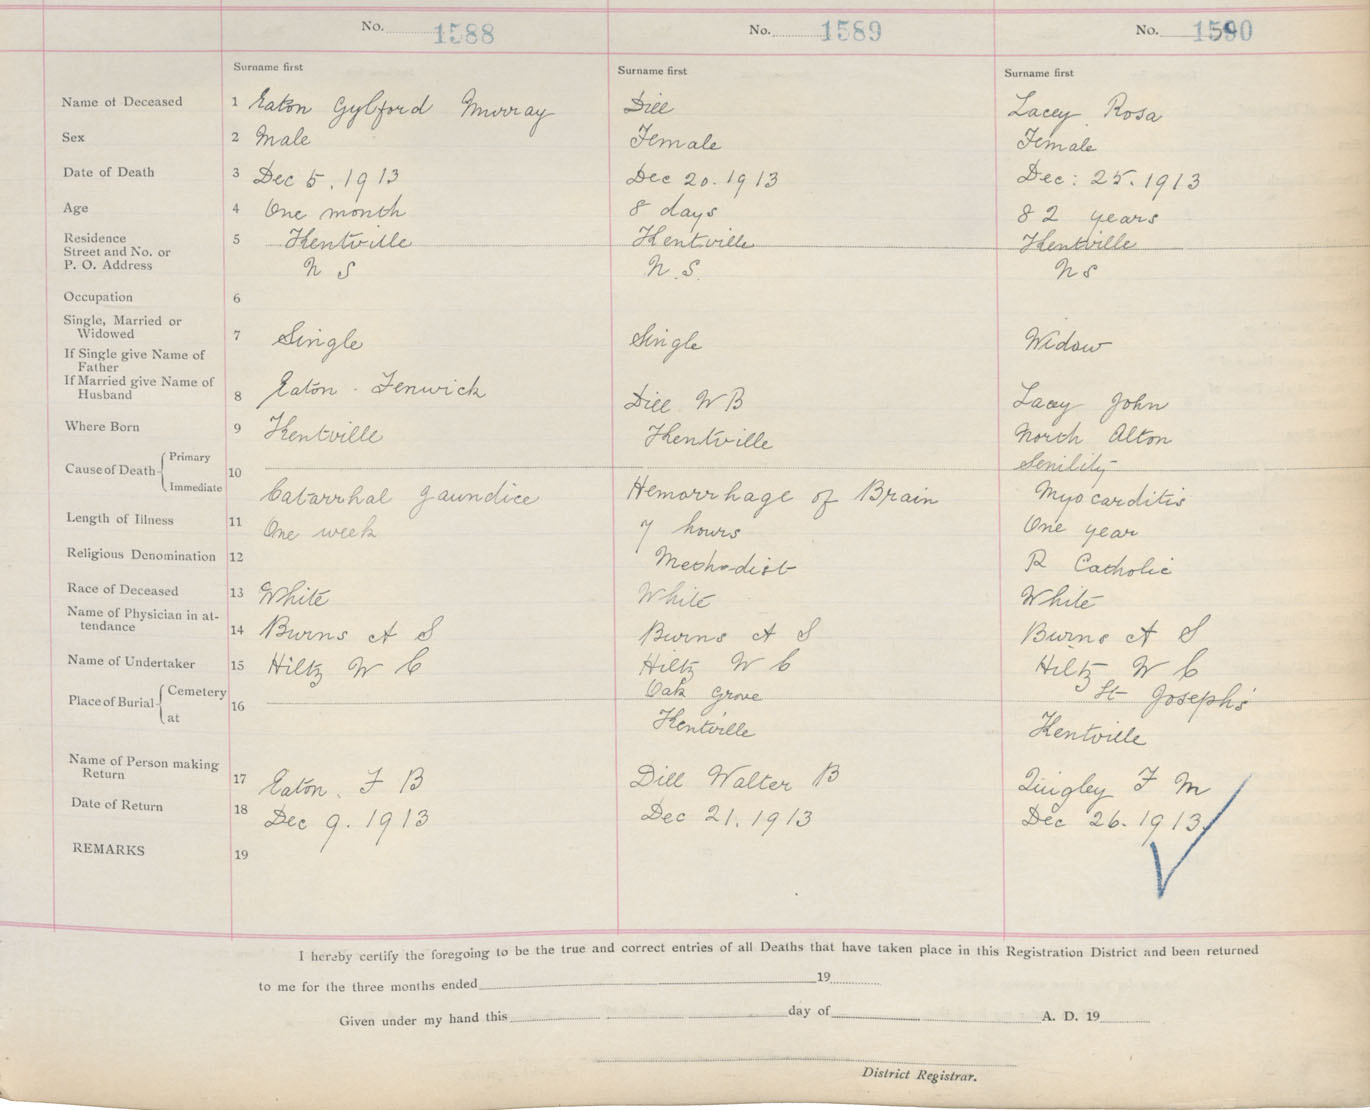 No. 1588 No. 1589 No. 1590
Surname first Surname first Surname first
Name of Deceased 1 Eaton Gylford Murray Dill Lacey Rosa
Sex 2 Male Female Female
Date of Death 3 Dec 5. 1913 Dec 20. 1913 Dec: 25. 1913
Age 4 One month 8 days 82 years
Residence 5 Kentville Kentville Kentville
Street and No. or
P. O. Address N S N. S. N S
Occupation 6
Single, Married or
Widowed 7 Single Single Widow
If Single give Name of
Father
If Married give Name of
Husband 8 Eaton - Fenwick Dill W B Lacey John
Where Born 9 Kentville Kentville North Alton
Cause of Death Primary 10 Senility
Immediate Catarrhal Jaundice Hemorrhage of Brain Myocarditis
Length of Illness 11 One week 7 hours One year
Religious Denomination 12 Methodist R Catholic
Race of Deceased 13 White White White
Name of Physician in at-
tendance 14 Burns A S Burns A S Burns A S
Name of Undertaker 15 Hiltz W C Hiltz W C Hiltz W C
Place of Burial Cemetery 16 Oak Grove St Joseph's
at Kentville Kentville
Name of Person making
Return 17 Eaton. F B Dill Walter B Quigley F M
Date of Return 18 Dec 9. 1913 Dec 21. 1913 Dec 26. 1913
REMARKS 19
I hereby certify the foregoing to be the true and correct entries of all Deaths that have taken place in this Registration District and been returned
to me for the three months ended 19
Given under my hand this day of A. D. 19
District Registrar.